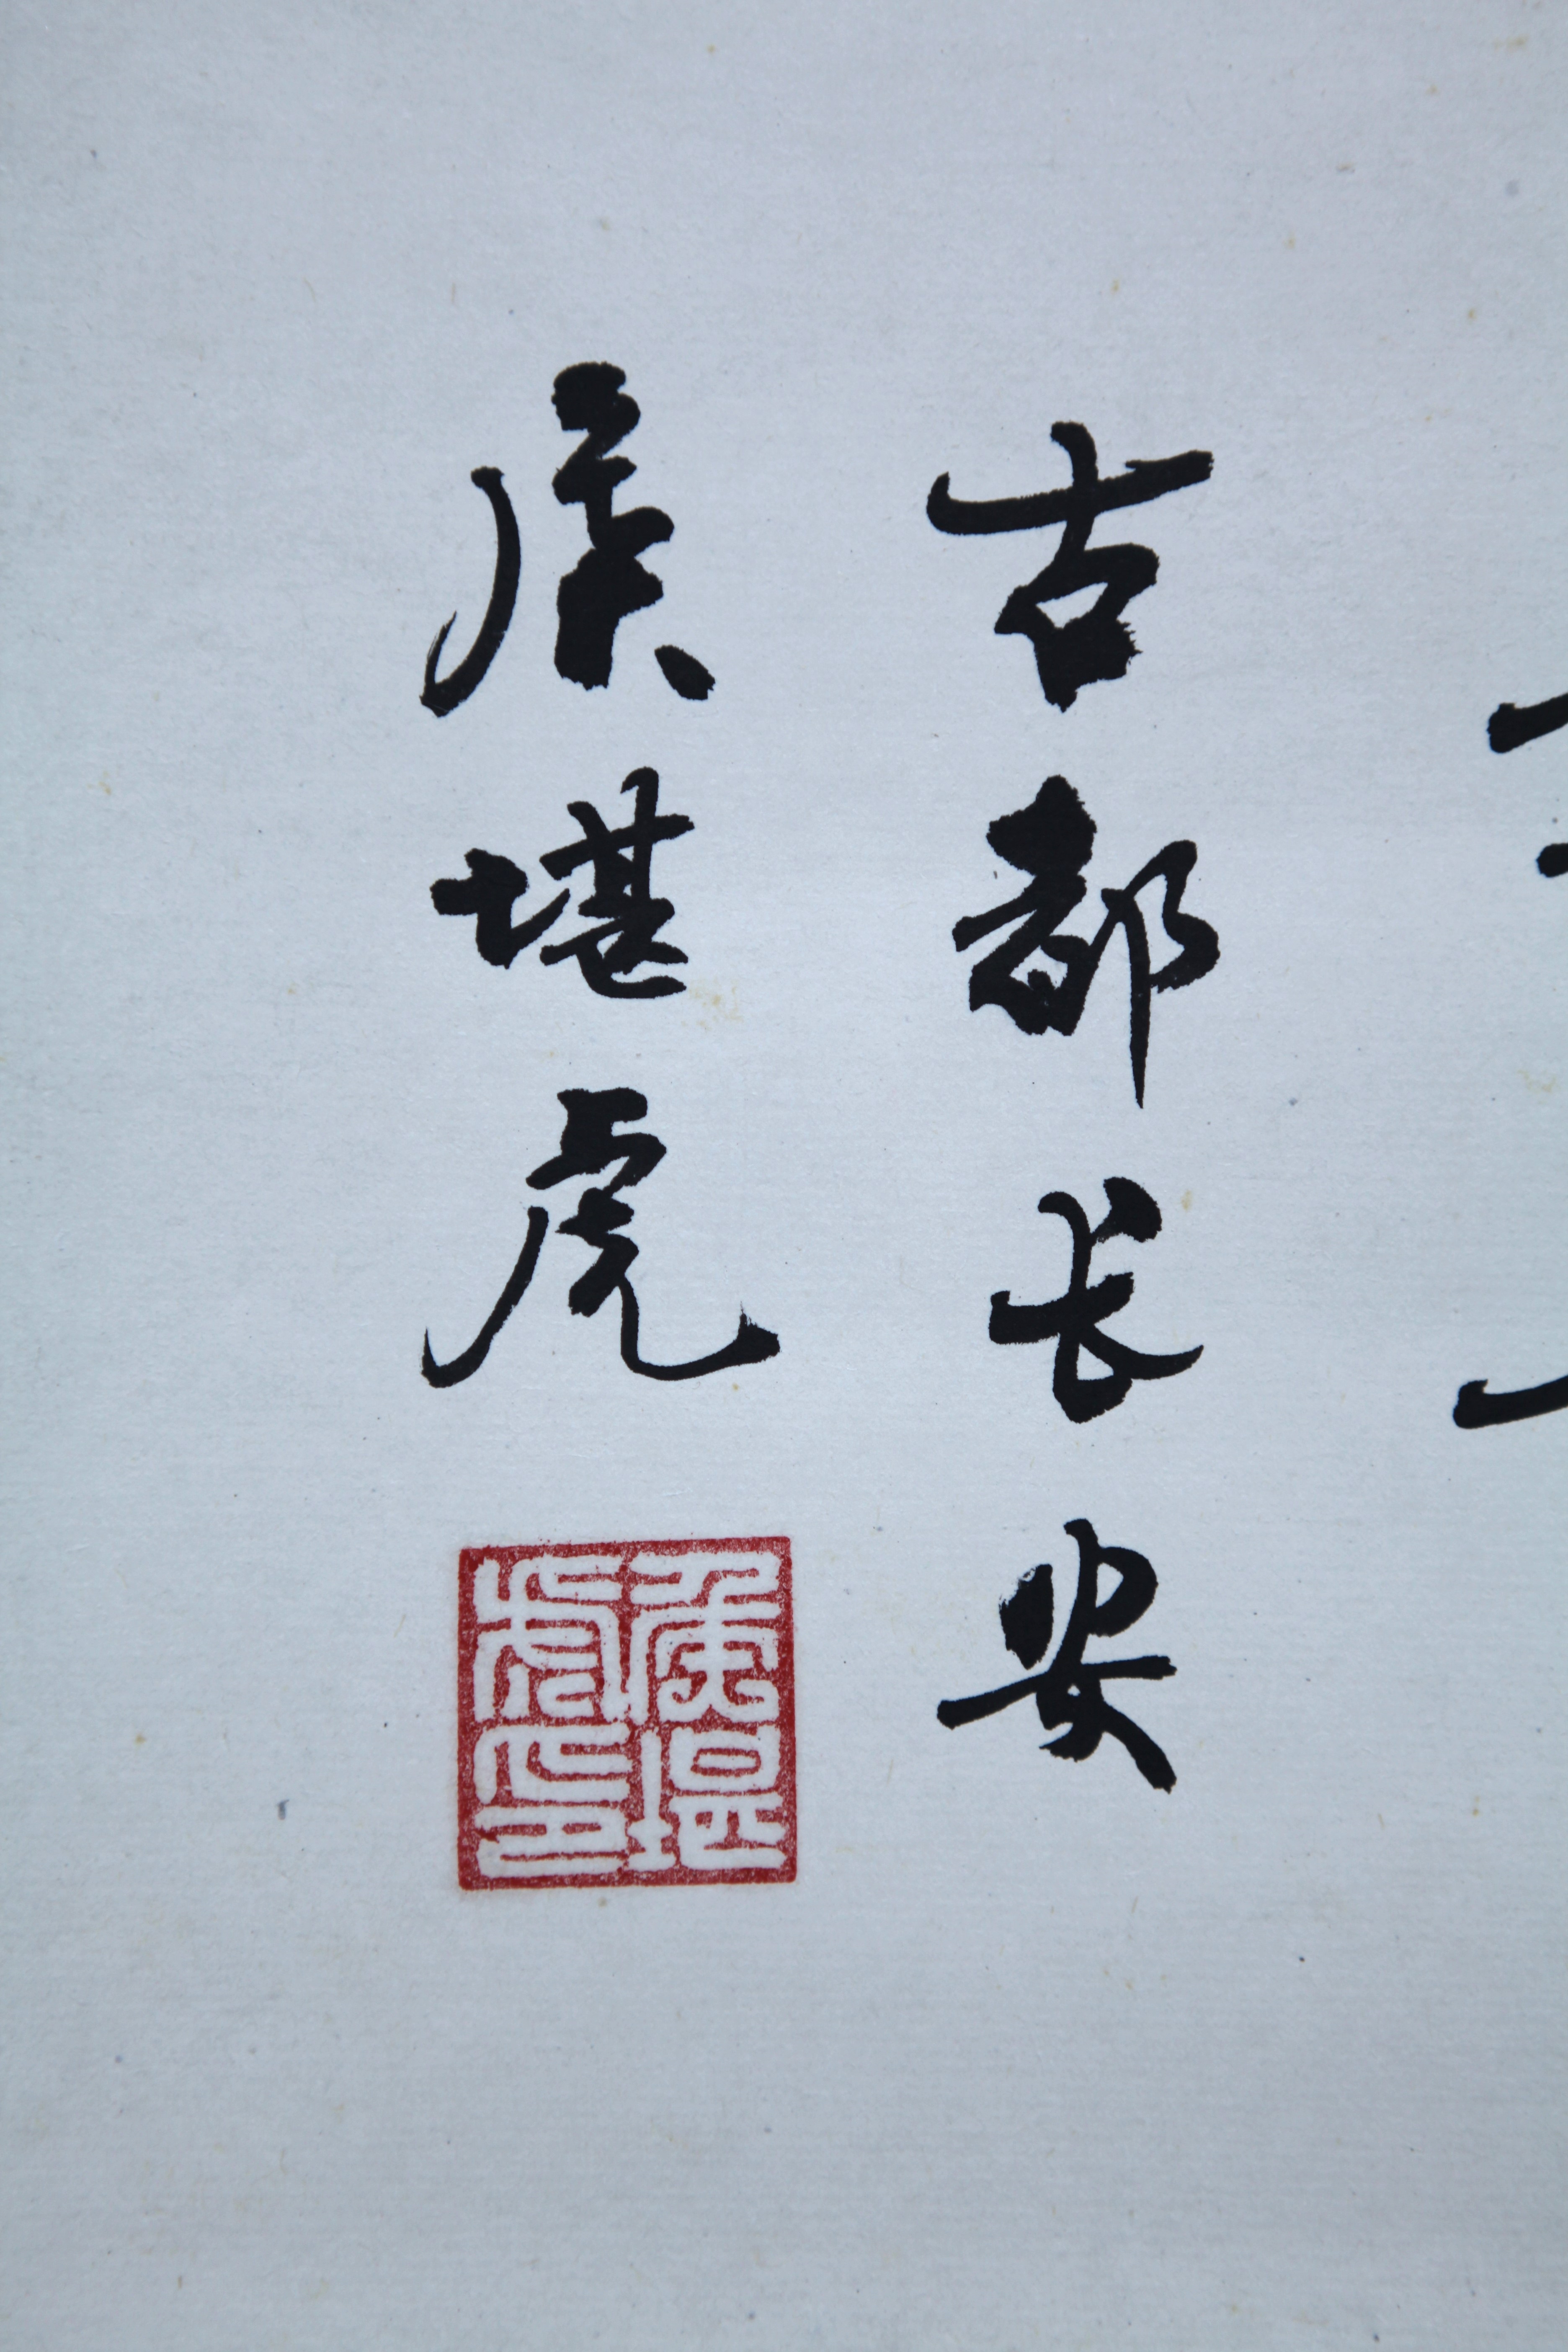 古都长安
侯堪虎
侯堪
虎印